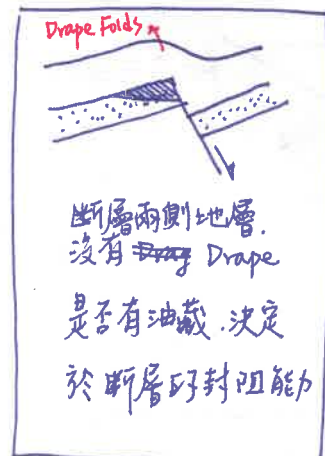 Drape Folds
断層兩側地層.
沒有 Drape
是否有油藏.決定
於断層的封阻能力